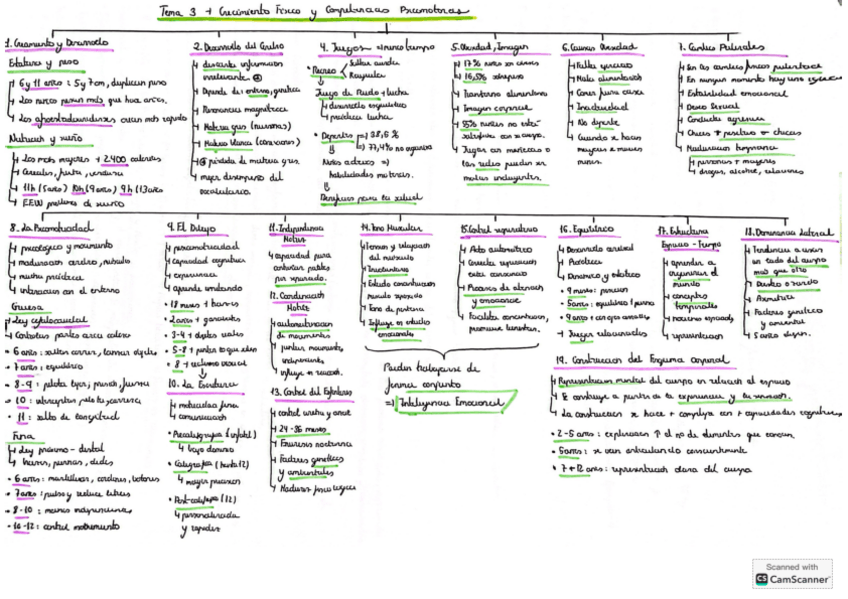 Tema 3 → Crecimiento Físico y Competencias Psicomotoras
1. Crecimiento y Desarrollo
Estatura y peso
6 y 11 años: 5 y 7cm, duplican peso
Las niñas pesan más que los
Los afroestadounidenses crecen más rápido
Nutrición y sueño
Los más mayores + 2400 calorías
Cereales, fruta, verdura
11h (5 años) 10h (9 años) 9h (13 años)
problemas de sueño
2. Desarrollo del Cerebro
descarta información
irrelevante
Depende del entorno, genética
Resonancia magnética
Materia gris (neuronas)
Materia blanca (conexiones)
pérdida de materia gris
mejor desempeño del
vocabulario.
4. Juegos
Recreo
Saltar cuerda
Rayuela
Juego de Rudo + lucha
desarrollo esquelético
práctica lucha
Deportes => 38,5 %
=> 77,4% no organizados
Niños activos =>
habilidades motrices.
Beneficios para la salud
5. Obesidad, Imagen
17% niños
16,5% sobrepeso
Trastorno alimentario
Imagen corporal
55% niñas no está
satisfecha con su cuerpo.
Jugar con muñecas o
las redes pueden ser
motivos influyentes.
6. Causas Obesidad
Falta ejercicio
Mala alimentación
Comer fuera casa
Inactividad
No deporte
Cuando se hacen
mayores
7. Cambios Puberales
En los cambios físicos pubertad
En ningún momento hay una
Estabilidad emocional
Deseo Sexual
Conducta agresiva
Chicos + positivo que chicas
Maduración temprana
personas + mayores
drogas, alcohol, relaciones
8. La Psicomotricidad
psicológico y movimiento
maduración cerebro, músculo
mucha práctica
interacción con el entorno
Gruesa
Ley cefalocaudal
Controlar partes cerca cabeza
6 años: saltar, correr, lanzar objetos
7 años: equilibrio
8-9: pelota lejos, presión, fuerza
10: interceptar pelota, carrera
11: salto de longitud
Fina
Ley próximo-distal
brazos, piernas, dedos
6 años: martillear, cordones, botones
7 años: pulso y reduce letras
8-10: manos independientes
10-12: control movimiento
9. El Dibujo
psicomotricidad
capacidad cognitiva
experiencia
aprende imitando
18 meses + barros
2 años + garabatos
5-8 + pintar lo que saben
8 + realismo visual
10. La Escritura
motricidad fina
comunicación
Precaligrafía (infantil)
bajo dominio
Caligrafía (hasta 12)
mayor precisión
Post-caligrafía (12)
personalizada
y rapidez
11. Independencia
Motriz
capacidad para
controlar partes
por separado.
12. Coordinación
Motriz
automatización
de movimientos
juntar movimientos,
independiente
influye
13. Control del Esfínteres
control orina y anal
24-36 meses
Enuresis nocturna
Factores genéticos
y ambientales
Madurez fisiológica
14. Tono Muscular
Tensión y relajación
del músculo
Involuntario
Estado constitución
músculo reposado
Tono de postura
Influye en estados
emocionales
15. Control respiratorio
Acto automático
Correcta respiración
Procesos de atención
y emociones
Facilita concentración,
16. Equilibrio
Desarrollo cerebral
Práctica
Dinámico y estático
9 meses: posición
5 años: equilibrio 1 pierna
Jugar relacionados
17. Estructura
Espacio-Tiempo
aprender a
organizar el
mundo
conceptos
temporales
representación
18. Dominancia Lateral
Tendencia a usar
un lado del cuerpo
más que otro
Diestro o zurdo
Asimetría
Factores genético
y ambiental
5 años
Pueden trabajarse de
forma conjunto
=> Inteligencia Emocional
19. Construcción del Esquema corporal
Representación mental del cuerpo en relación al espacio
Se construye a partir de la experiencia y la interacción.
La construcción se hace + compleja con + capacidades cognitivas
2-5 años: exploración ↑ el nº de elementos que conocen.
5 años: se van articulando conscientemente
7+12 años: representación clara del cuerpo
Scanned with
CS CamScanner